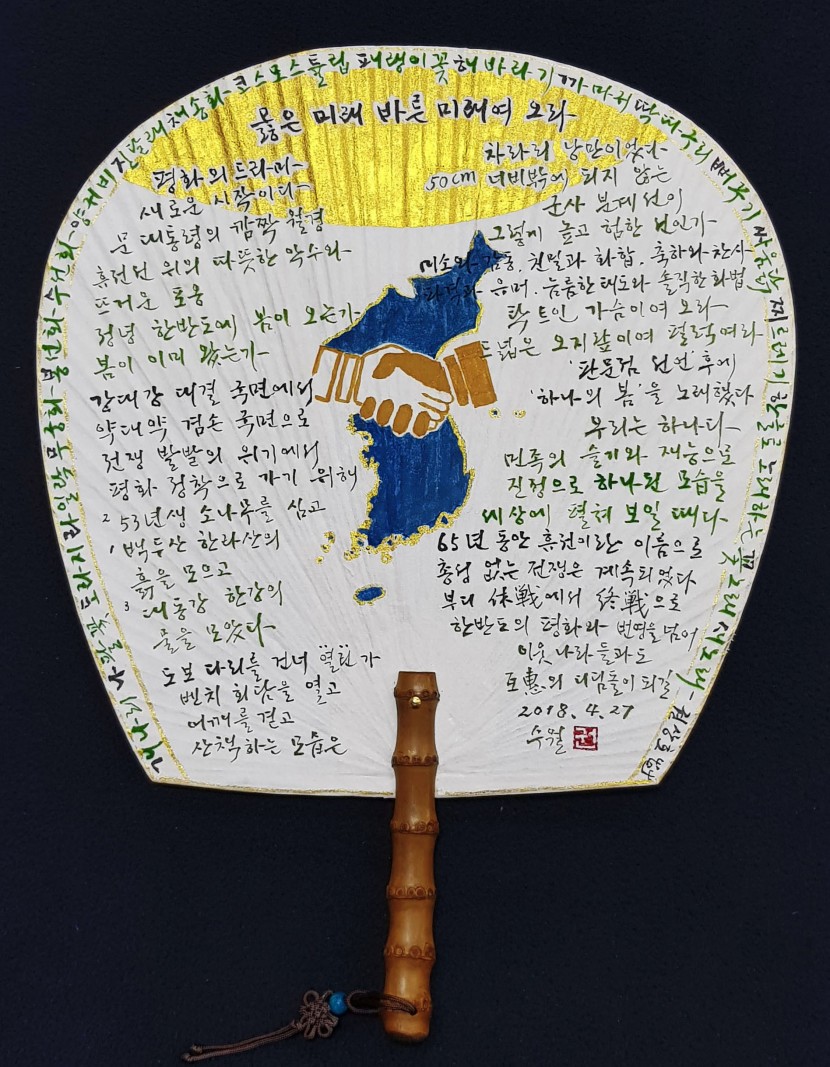 맑은 미래 바른 미래여 오라
평화의 드라마
새로운 시작이다
문 대통령의 깜짝 월경
휴전선 위의 따뜻한 악수와
뜨거운 포옹
정녕 한반도에 봄이 오는가
봄이 이미 왔는가
강대강 대결 국면에서
약대약 겸손 국면으로
전쟁 발발의 위기에서
평화 정착으로 가기 위해
2 53년생 소나무를 심고
1 백두산 한라산의
흙을 모으고
3 대동강 한강의
물을 모았다
도보 다리를 건너 열린가
벤치 회담을 열고
어깨를 겯고
산책하는 모습은
차라리 낭만이었다
50cm 너비밖에 되지 않는
군사 분계선이
그렇게 높고 험한 선인가
미소와 감동, 친밀과 화합, 축하와 찬사
파격과 유머, 늠름한 태도와 솔직한 화법
탁 트인 가슴이여 오라
드넓은 오지랖이여 펄럭여라
'판문점 선언' 후에
'하나의 봄'을 노래했다
우리는 하나다
민족의 슬기와 재능으로
진정으로 하나된 모습을
세상에 펼쳐 보일 때다
65년 동안 휴전이란 이름으로
총성 없는 전쟁은 계속되었다
부디 休戦에서 終戦으로
한반도의 평화와 번영을 넘어
이웃나라들과도
互惠의 디딤돌이 되길
2018. 4. 27
수월
권
도라지 라일락 무궁화 봉선화 수선화 양귀비 진달래 채송화 코스모스 튤립 패랭이꽃 해바라기 까마귀 딱따구리 뻐꾸기
찌르레기 한글로 노래하는 꽃노래 새노래